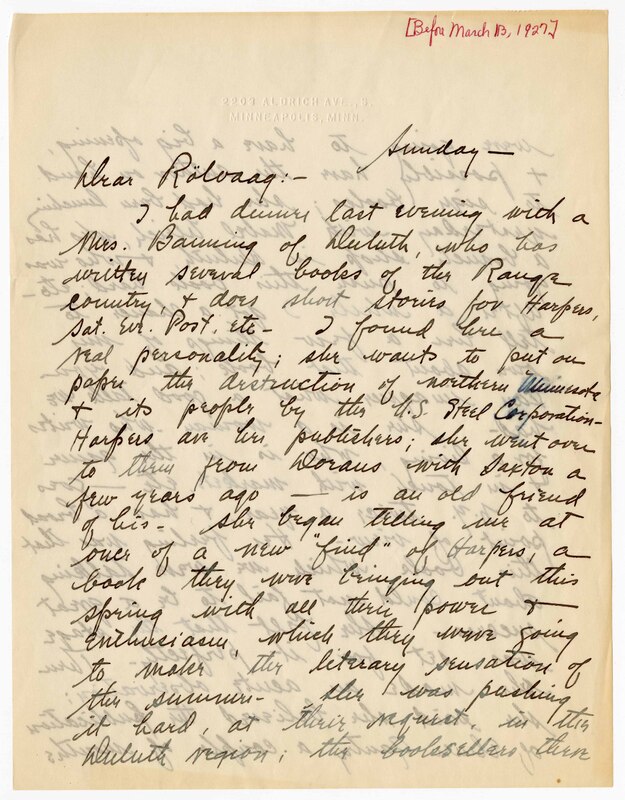 [Before March 13, 1927]
2203 ALDRICH AVE., S.
MINNEAPOLIS, MINN.
Sunday—
Dear Rölvaag:-
I had dinner last evening with a
Mrs. Banning of Duluth, who has
written several books of the Range
country, & does short stories for Harpers,
Sat. Eve. Post. etc- I found her a
real personality; she wants to put on
paper the destruction of northern Minnesota
& its people by the U.S. Steel Corporation-
Harpers are her publishers; she went over
to them from Dorans with Saxton a
few years ago — is an old friend
of his- She began telling me at
once of a new "find" of Harpers, a
book they were bringing out this
spring with all their power &
enthusiasm, which they were going
to make the literary sensation of
the summer- she was pushing
it hard, at their request, in the
Duluth region; the booksellers there